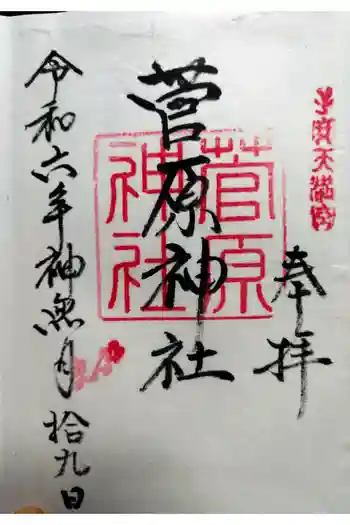 奉拝
菅原神社
菅原
神社
令和六年神無月拾九日